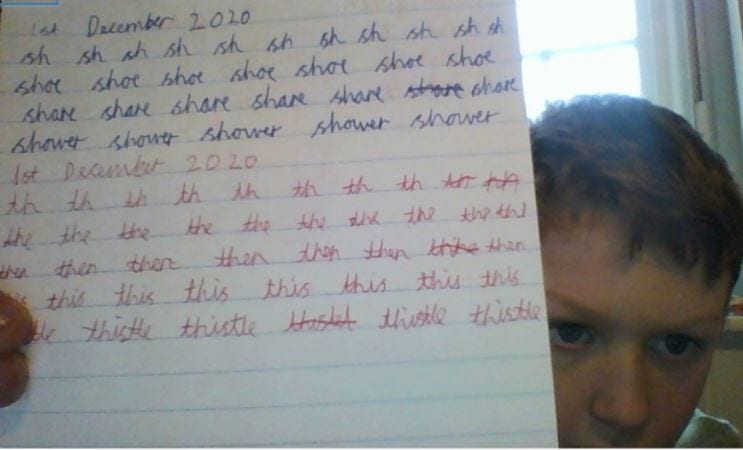 1st December 2020
sh sh sh sh sh sh sh sh sh sh sh
shoe shoe shoe shoe shoe shoe shoe
share share share share share share share
shower shower shower shower shower
1st December 2020
th th th th th th th th th
the the the the the the the the the the
then then then then then then then
this this this this this this this
thistle thistle thistle thistle